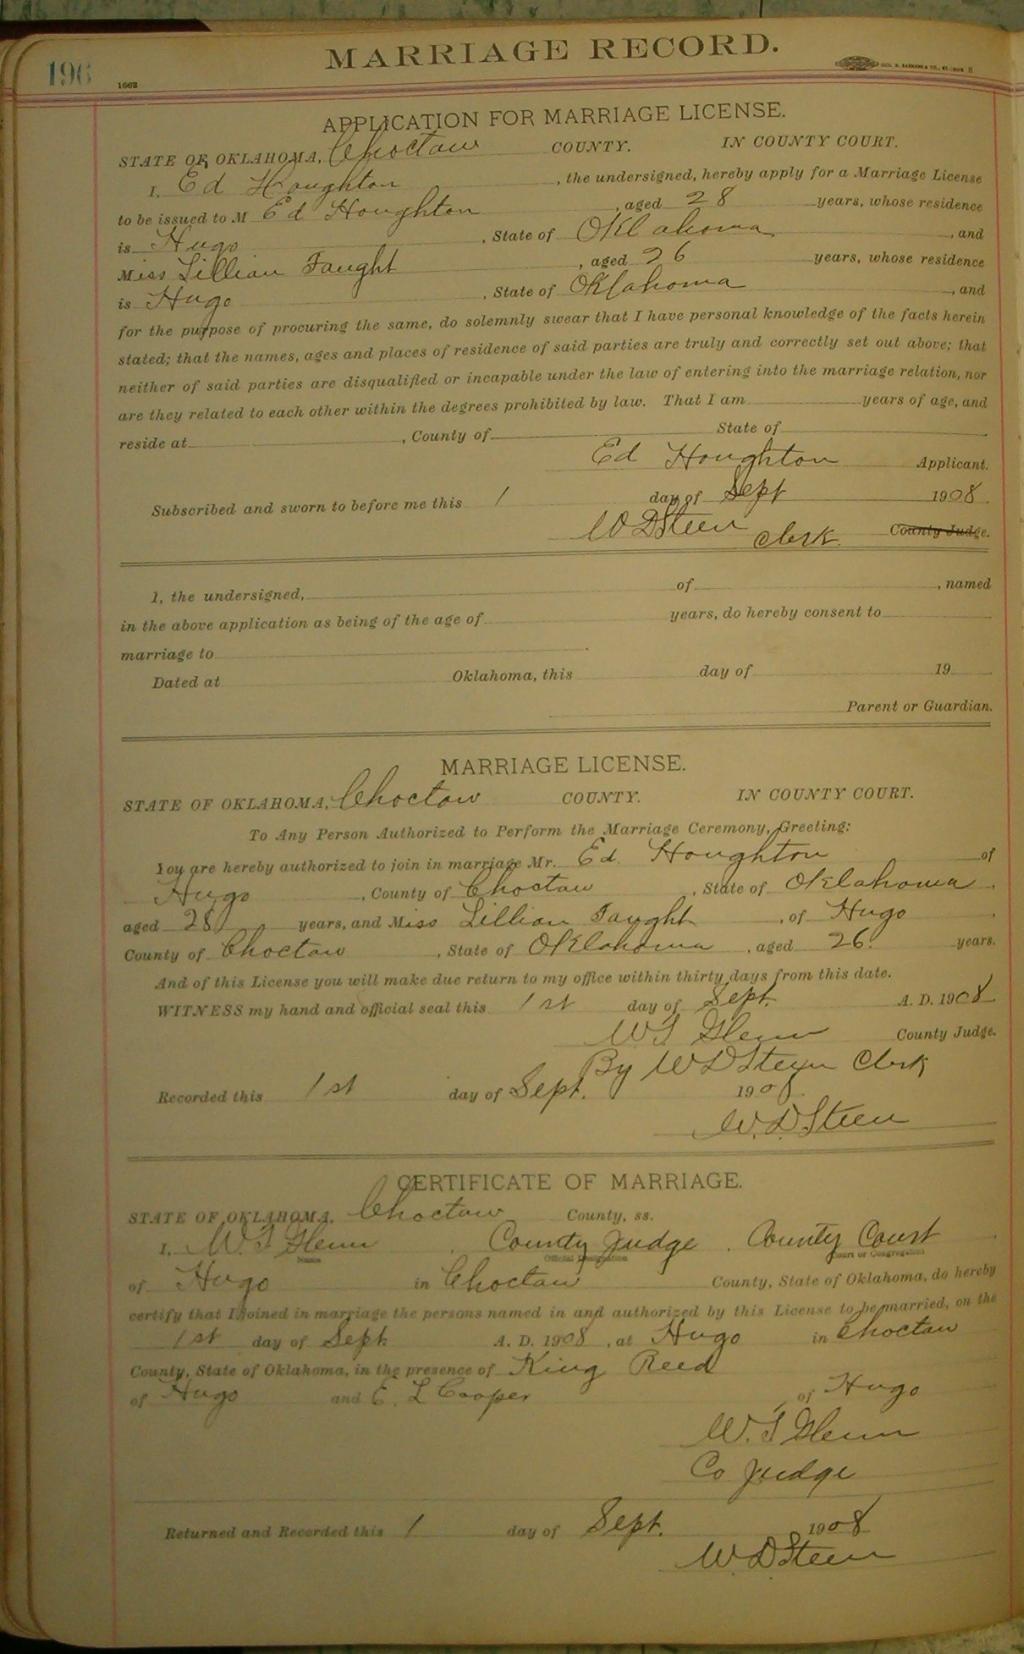 196
MARRIAGE RECORD.
1662
APPLICATION FOR MARRIAGE LICENSE.
STATE OF OKLAHOMA, Choctaw COUNTY. IN COUNTY COURT.
I, Ed Houghton, the undersigned, hereby apply for a Marriage License
to be issued to M Ed Houghton, aged 28 years, whose residence
is Hugo, State of Oklahoma, and
Miss Lillian Faught, aged 26 years, whose residence
is Hugo, State of Oklahoma, and
for the purpose of procuring the same, do solemnly swear that I have personal knowledge of the facts herein
stated; that the names, ages and places of residence of said parties are truly and correctly set out above; that
neither of said parties are disqualified or incapable under the law of entering into the marriage relation, nor
are they related to each other within the degrees prohibited by law. That I am years of age, and
reside at, County of State of
Ed Houghton Applicant.
Subscribed and sworn to before me this 1 day of Sept 1908
W D Steen Clerk County Judge.
I, the undersigned, of, named
in the above application as being of the age of years, do hereby consent to
marriage to
Dated at Oklahoma, this day of 19
Parent or Guardian.
MARRIAGE LICENSE.
STATE OF OKLAHOMA, Choctaw COUNTY. IN COUNTY COURT.
To Any Person Authorized to Perform the Marriage Ceremony, Greeting:
You are hereby authorized to join in marriage Mr. Ed. Houghton of
Hugo, County of Choctaw, State of Oklahoma,
aged 28 years, and Miss Lillian Faught, of Hugo,
County of Choctaw, State of Oklahoma, aged 26. years.
And of this License you will make due return to my office within thirty days from this date.
WITNESS my hand and official seal this 1st day of Sept. A. D. 1908
W T Glenn County Judge.
By W D Steen Clerk
Recorded this 1st day of Sept. 1908
W. D. Steen
CERTIFICATE OF MARRIAGE.
STATE OF OKLAHOMA, Choctaw County, ss.
I, W. T Glenn, County Judge, County Court
Name Official Designation Court or Congregation
of Hugo in Choctaw County, State of Oklahoma, do hereby
certify that I joined in marriage the persons named in and authorized by this License to be married, on the
1st day of Sept. A. D. 1908, at Hugo in Choctaw
County, State of Oklahoma, in the presence of King Reed
of Hugo and E. L Cooper of Hugo
W. T Glenn
Co Judge
Returned and Recorded this 1 day of Sept. 1908
W. D Steen